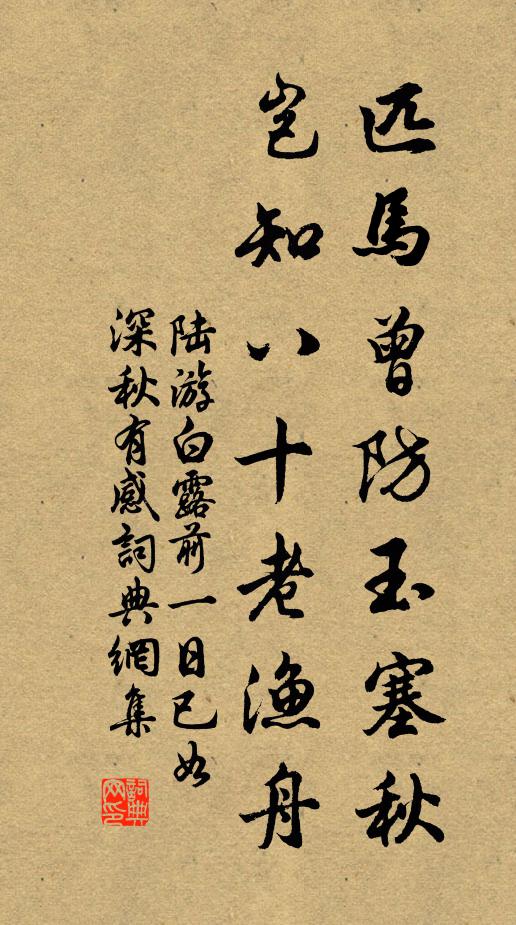 匹馬曾防玉塞秋
豈知八十老漁舟
陆游白露前一日已如
深秋有感詞典網集
詞典
网印